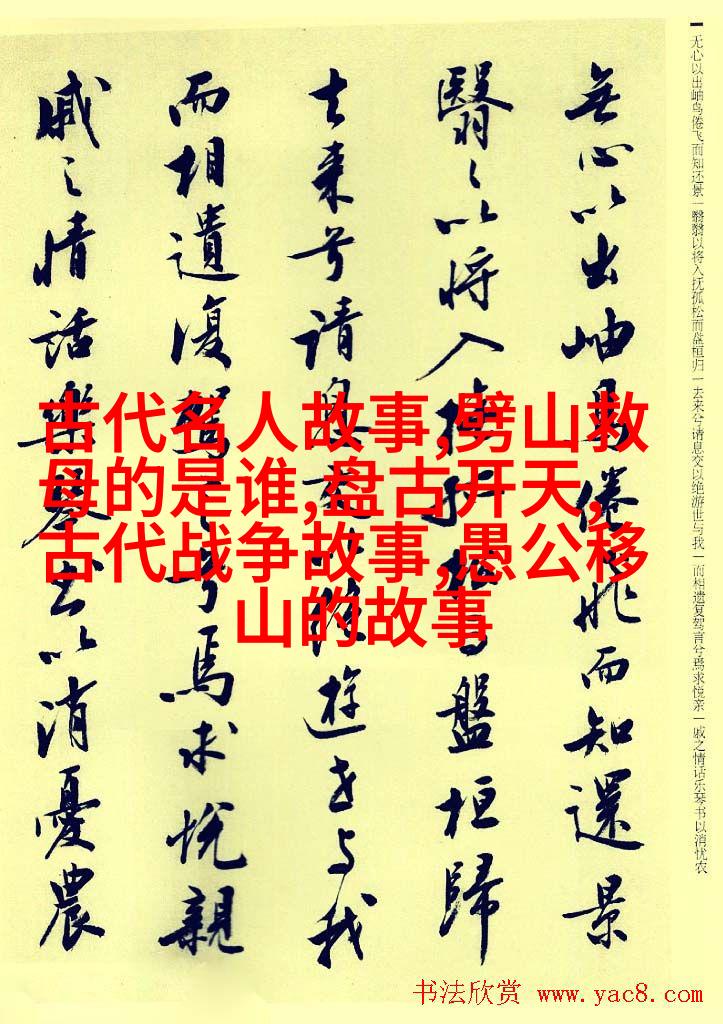 无心以出岫鸟倦飞而知还景一翳翳以将入抚孤松而盘桓归一去来兮请息交以绝游世与我一而相遗复驾言兮焉求悦亲一戚之情话乐琴书以消忧农
無心以出岫鳥倦飛而知還景
翳〻以將入撫孤松而盤桓歸
去来兮請息交以絶遊世与我
而相遺復駕言兮焉求悦親
戚之情話樂琴書以消憂農
古代名人故事,劈山救
母的是谁,盘古开天,
古代战争故事,愚公移
山的故事
书法欣赏 www.yac8.com